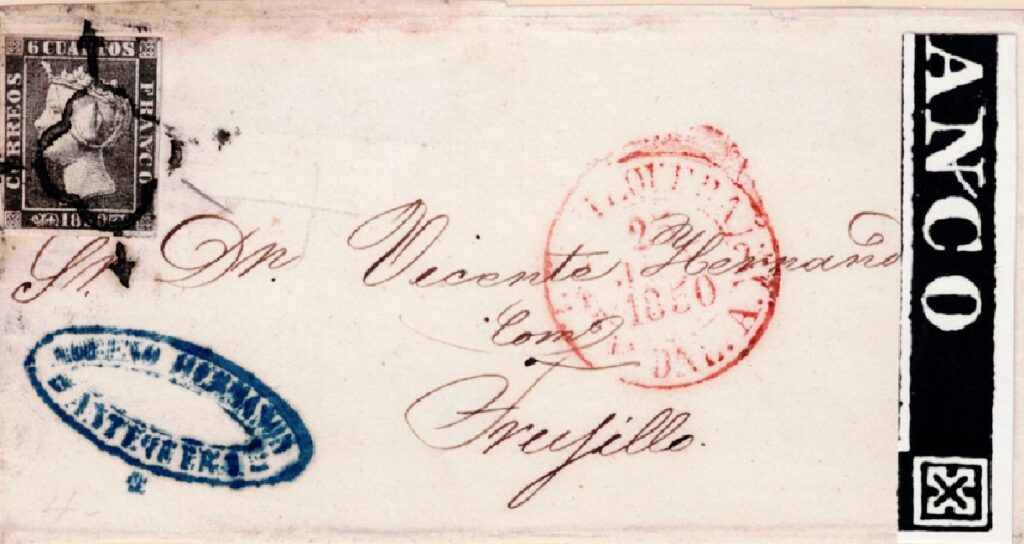 6 CUARTOS
CORREOS
FRANCO
1850
Sr. Dn. Vicente Hernand
Com
Trujillo.
1850
HERMANOS
ANTEQUERA
ANCO